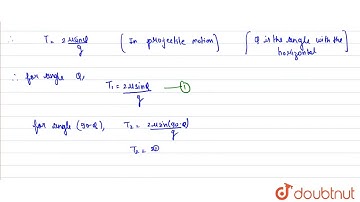 ∴ T = 2usinQ/g (In projectile motion) [Q is the angle with the horizontal
∴ for angle Q,
T₁ = 2usinQ/g —— ①
for angle (90-Q), T₂ = 2usin(90-Q)/g
T₂ =
doubtnut